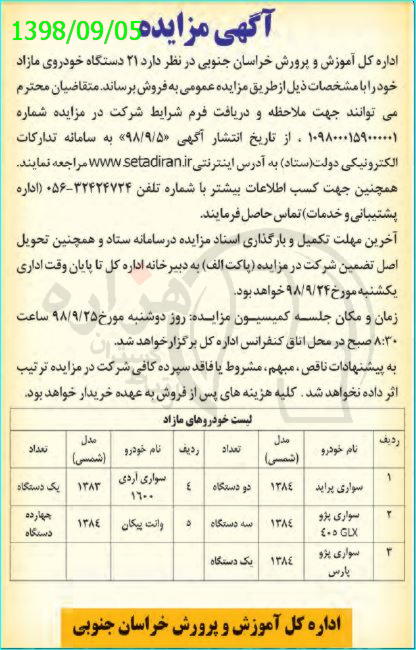 1398/09/05
آگهی مزایده
اداره کل آموزش و پرورش خراسان جنوبی در نظر دارد ۲۱ دستگاه خودروی مازاد
خود را با مشخصات ذیل از طریق مزایده عمومی به فروش برساند. متقاضیان محترم
می توانند جهت ملاحظه و دریافت فرم شرایط شرکت در مزایده شماره
۱۰۹۸۰۰۰۱۵۹۰۰۰۰۰۱ ، از تاریخ انتشار آگهی «۹۸/۹/۵» به سامانه تدارکات
الکترونیکی دولت(ستاد) به آدرس اینترنتی www.setadiran.ir مراجعه نمایند.
همچنین جهت کسب اطلاعات بیشتر با شماره تلفن ۳۲۴۲۴۷۲۴-۰۵۶ (اداره
پشتیبانی و خدمات) تماس حاصل فرمایند.
آخرین مهلت تکمیل و بارگذاری اسناد مزایده در سامانه ستاد و همچنین تحویل
اصل تضمین شرکت در مزایده (پاکت الف) به دبیرخانه اداره کل تا پایان وقت اداری
یکشنبه مورخ ۹۸/۹/۲۴ خواهد بود.
زمان و مکان جلسه کمیسیون مزایده: روز دوشنبه مورخ ۹۸/۹/۲۵ ساعت
۸:۳۰ صبح در محل اتاق کنفرانس اداره کل برگزار خواهد شد.
به پیشنهادات ناقص ، مبهم ، مشروط یا فاقد سپرده کافی شرکت در مزایده ترتیب
اثر داده نخواهد شد . کلیه هزینه های پس از فروش به عهده خریدار خواهد بود.
لیست خودروهای مازاد
ردیف نام خودرو مدل (شمسی) تعداد ردیف نام خودرو مدل (شمسی) تعداد
۱ سواری پراید ۱۳۸٤ دو دستگاه ٤ سواری آردی ۱٦۰۰ ۱۳۸۳ یک دستگاه
۲ سواری پژو GLX ٤۰٥ ۱۳۸٤ سه دستگاه ٥ وانت پیکان ۱۳۸٤ چهارده دستگاه
۳ سواری پژو پارس ۱۳۸٤ یک دستگاه
اداره کل آموزش و پرورش خراسان جنوبی